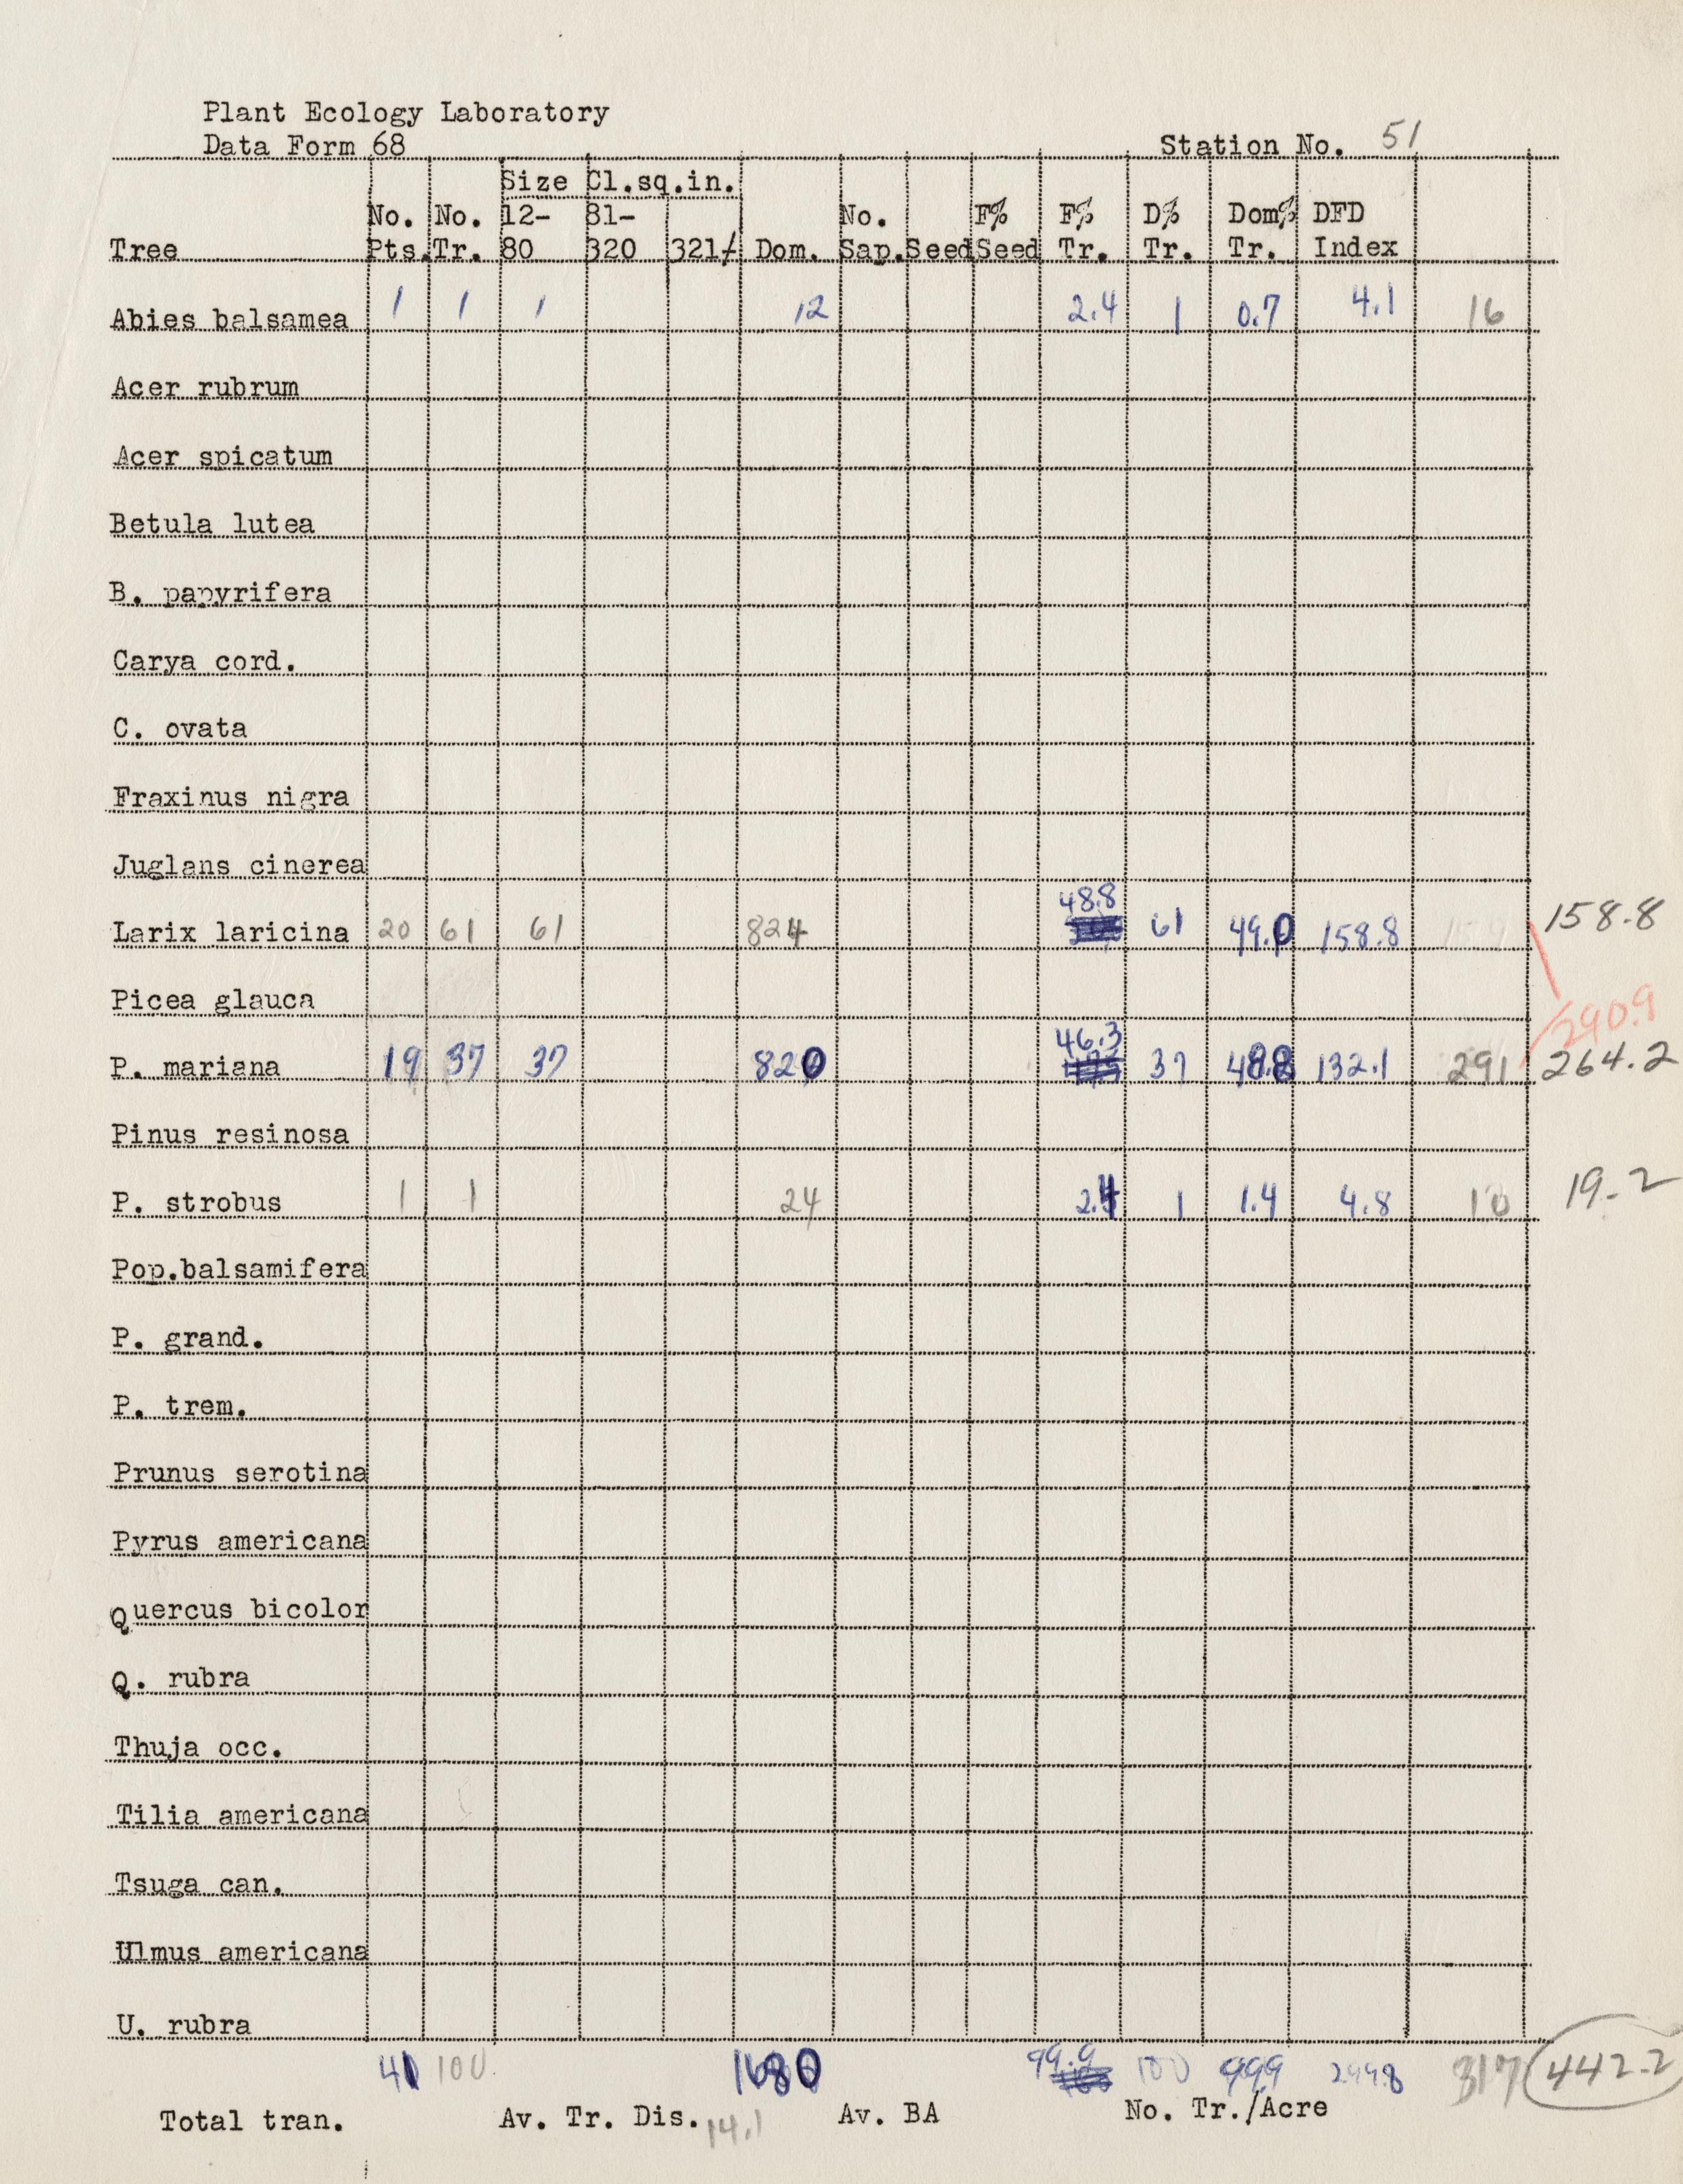 Plant Ecology Laboratory
Data Form 68 Station No. 51
Size Cl.sq.in.
No. No. 12- 81- No. F% F% D% Dom% DFD
Tree Pts. Tr. 80 320 321/ Dom. Sap. Seed Seed Tr. Tr. Tr. Index
Abies balsamea 1 1 1 12 2.4 1 0.7 4.1 16
Acer rubrum
Acer spicatum
Betula lutea
B. papyrifera
Carya cord.
C. ovata
Fraxinus nigra
Juglans cinerea
48.8
Larix laricina 20 61 61 824 61 49.0 158.8 158.8
Picea glauca
290.9
46.3
P. mariana 19 37 37 820 37 48.8 132.1 291 264.2
Pinus resinosa
P. strobus 1 1 24 2.4 1 1.4 4.8 10 19.2
Pop.balsamifera
P. grand.
P. trem.
Prunus serotina
Pyrus americana
Quercus bicolor
Q. rubra
Thuja occ.
Tilia americana
Tsuga can.
Ulmus americana
U. rubra
41 100 1680 99.9 100 99.9 299.8 317 442.2
Total tran. Av. Tr. Dis. 14.1 Av. BA No. Tr./Acre